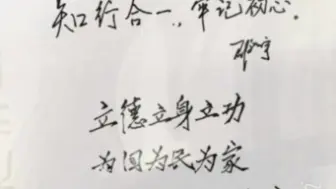 知行合一，牢记初心。
立德立身立功
为国为民为家